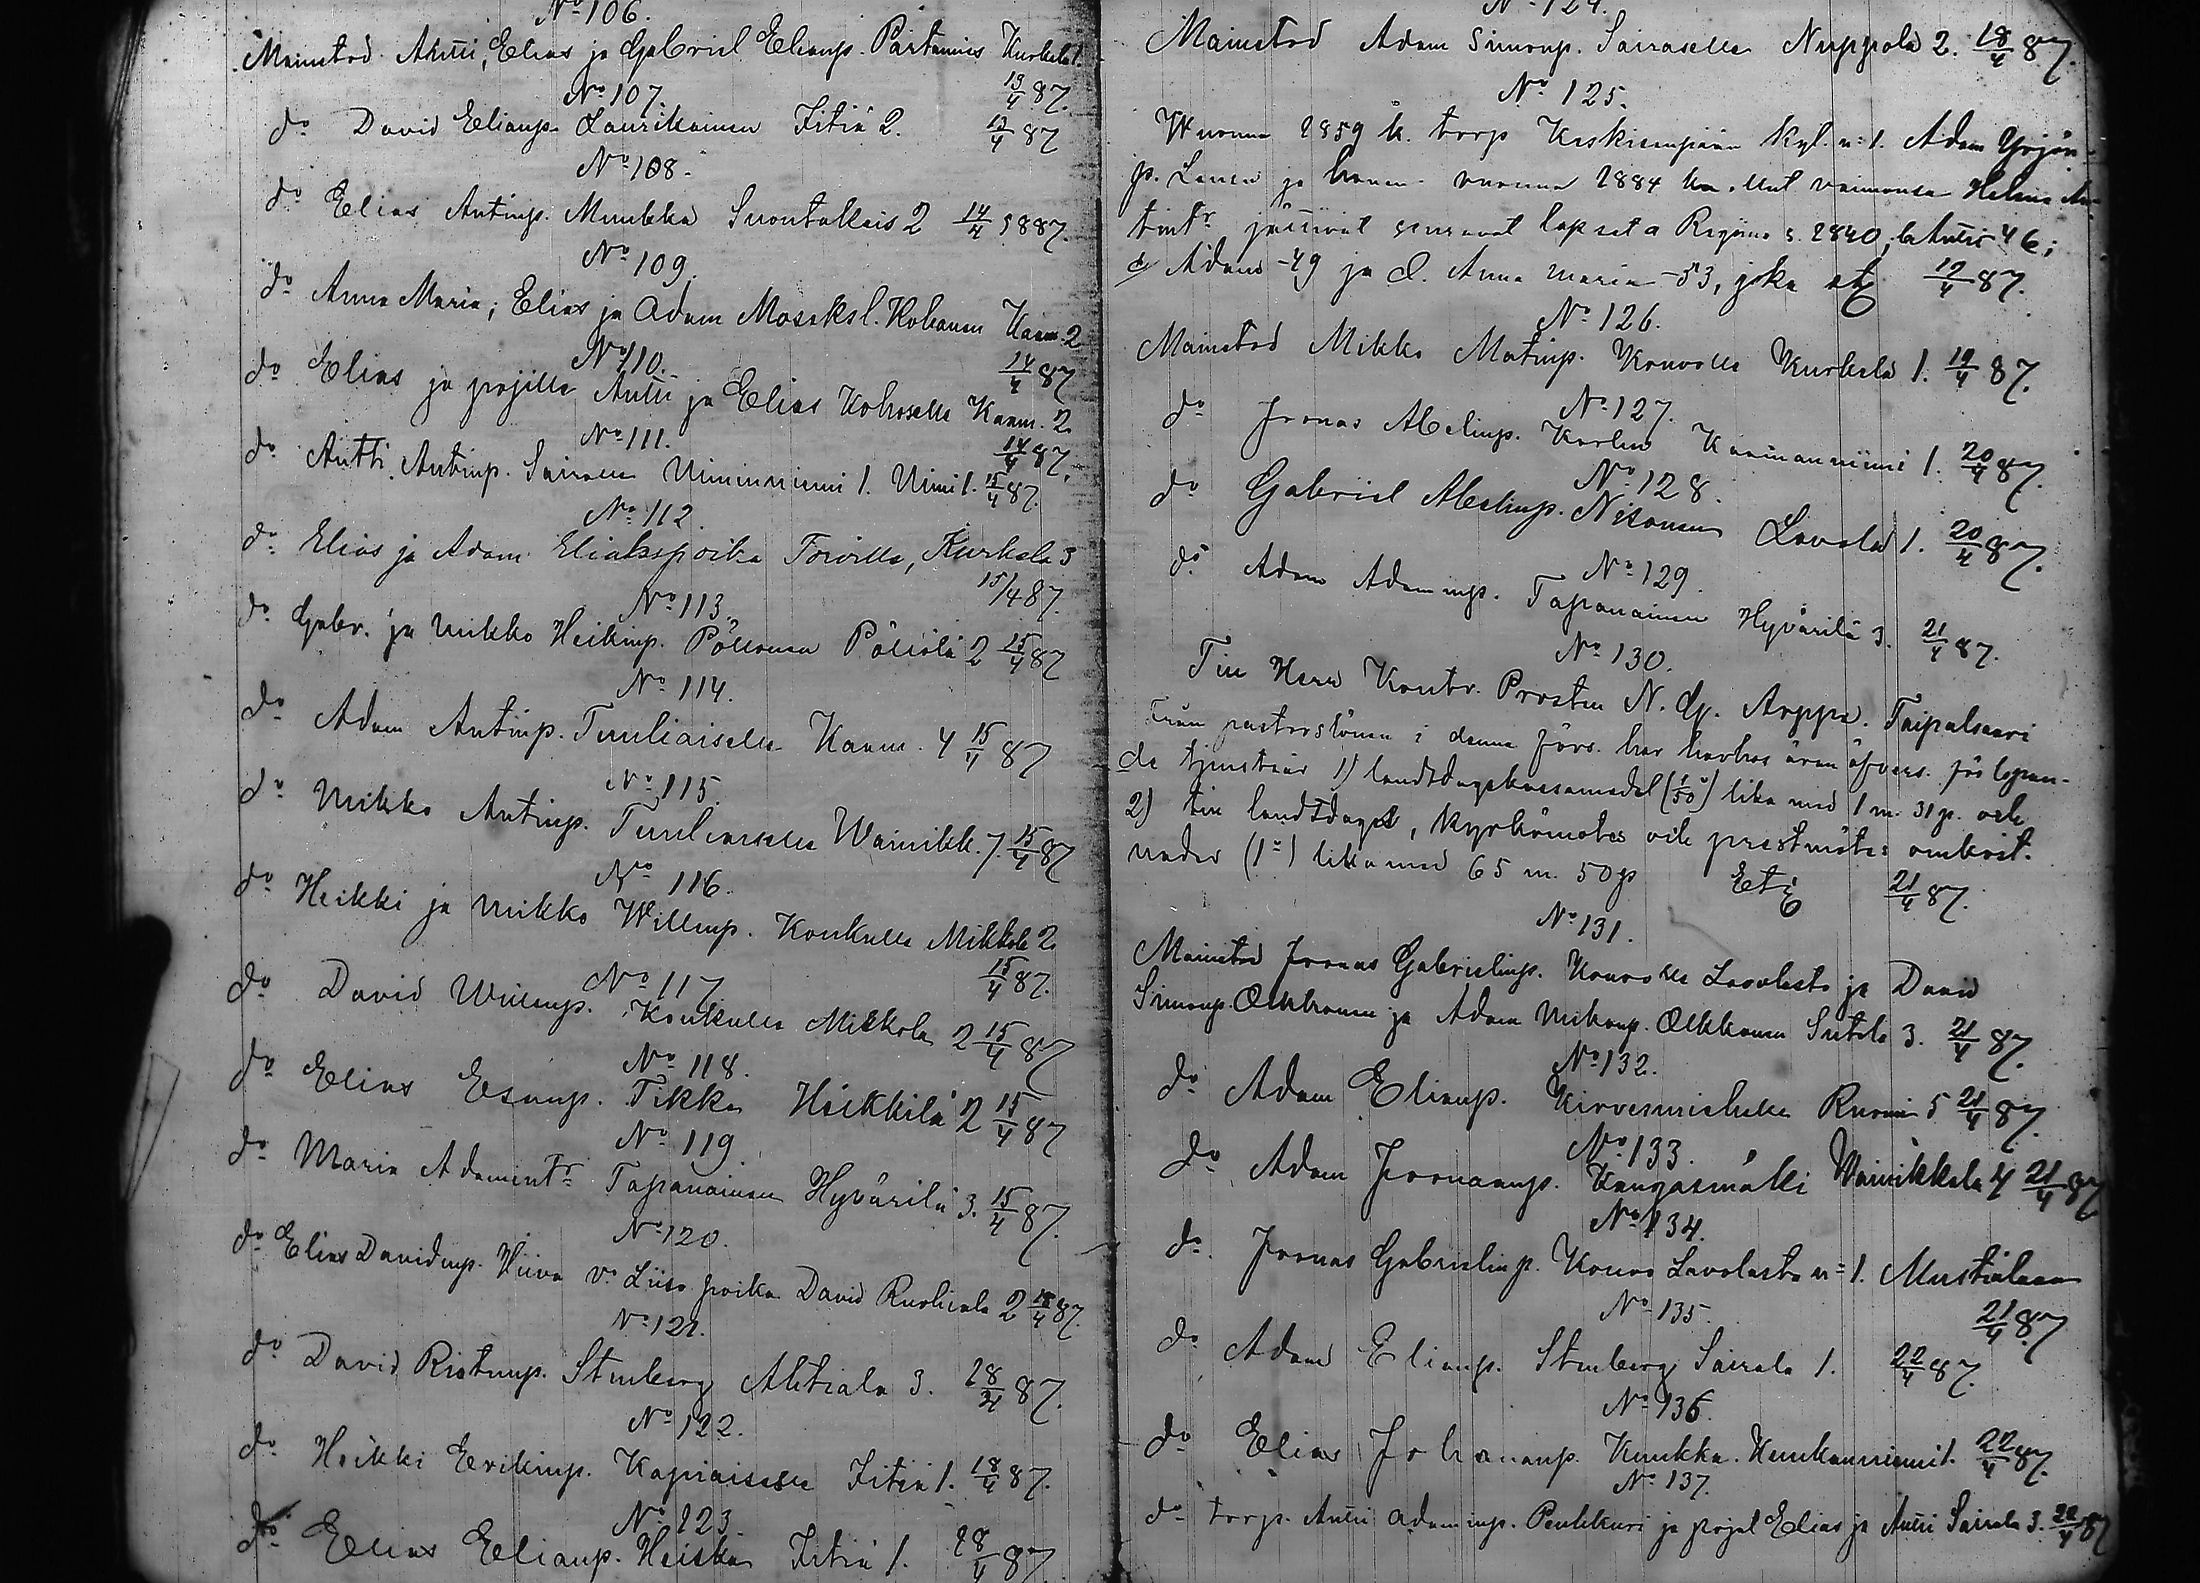 No 106.
Mainetod. Antti, Elias ja Gabriel Elianp. Partanius Kurkela 1.
13/4 87.
No 107.
do David Elianp. Laurikainen Iitiä 2. 13/4 87
No 108.
do Elias Antinp. Munkka Suontakais 2 14/4 1887.
No 109.
do Anna Maria; Elias ja Adam Moseksl. Kohonen Kaam. 2
14/4 87
No 110.
do Elias ja pojille Antti ja Elias Kohoselle Kaam. 2.
14/4 87.
No 111.
do Antti Antinp. Sairanen Niminniemi 1. Nimi 1. 15/4 87.
No 112.
do Elias ja Adam Eliakspoika Toivilla, Kurkela 3
15/4 87.
No 113.
do Gabr. ja Mikko Heikinp. Pöllönen Pöllölä 2 15/4 87
No 114.
do Adam Antinp. Tuuliaiselle Kaam. 4 15/4 87
No 115.
do Mikko Antinp. Tuuliaiselle Wainikk. 7. 15/4 87
No 116.
do Heikki ja Mikko Willenp. Konkulle Mikkola 2.
15/4 87.
No 117
do David Willenp. Konkulle Mikkola 2 15/4 87
No 118.
do Elias Esanp. Tikka Heikkilä 2 15/4 87
No 119.
do Maria Adamintr. Tapanainen Hyvärilä 3. 15/4 87.
No 120.
do Elias Davidinp. Hiiva vo Liisa poika David Ruohiala 2 18/4 87.
No 121.
do David Ristonp. Stenberg Ahtiala 3. 18/4 87.
No 122.
do Heikki Erikinp. Kapiaiselle Iitiä 1. 18/4 87.
No 123.
do Elias Elianp. Heiska Iitiä 1. 18/4 87.
No 124.
Mainetod Adam Simonp. Sairaselle Nuppola 2. 18/4 87.
No 125.
Wuonna 1859 k. torp Keskisenpään kyl. n:1. Adam Yrjön-
p. Lauen ja hänen vuonna 1884 kuollut vaimonsa Helena An-
tintr jättivät seuraavat lapset a Regina s. 1840, b. Antti 46;
c/ Adam -49 ja d. Anna Maria -53, joka etc 19/4 87.
No 126.
Mainetod Mikko Matinp. Konosella Kurkela 1. 19/4 87.
No 127.
do Joonas Abelinp. Karhu Karinanniemi 1. 20/4 87.
No 128.
do Gabriel Abelinp. Nisonen Lavola 1. 20/4 87.
No 129.
do Adam Adaminp. Tapanainen Hyvärilä 3. 21/4 87.
No 130.
Till Herr Kontr. Prosten N. G. Arppe. Taipalsaari
Från pastorslönen i denna förs. har härhos äran öfvers. följan-
de tjenstear 1) landtdagskassamedel (1/50) lika med 1 m. 31 p. och
2) till landtdags, kyrkomötes och prestmötes omkost-
nader (1o) lika med 65 m. 50 p Etc 21/4 87.
No 131.
Mainetod Joonas Gabrielinp. Konoselle Lavolasta ja David
Simonp. Olkkonen ja Adam Mikonp. Olkkonen Sutela 3. 21/4 87.
No 132.
do Adam Elianp. Kirvesmieheke Ruomi 5 21/4 87.
No 133.
do Adam Joonaanp. Kangasmäki Wainikkala 4 21/4 87
No 134.
do Joonas Gabrielinp. Konos Lavolasta n:1. Mustialaan
21/4 87
No 135.
do Adam Elianp. Stenberg Sairala 1. 22/4 87.
No 136.
do Elias Johananp. Kunkka. Kunkanniemi 1. 22/4 87.
No 137.
do torp. Antti Adaminp. Penkkuri ja pojat Elias ja Antti Sairala 3. 22/4 87